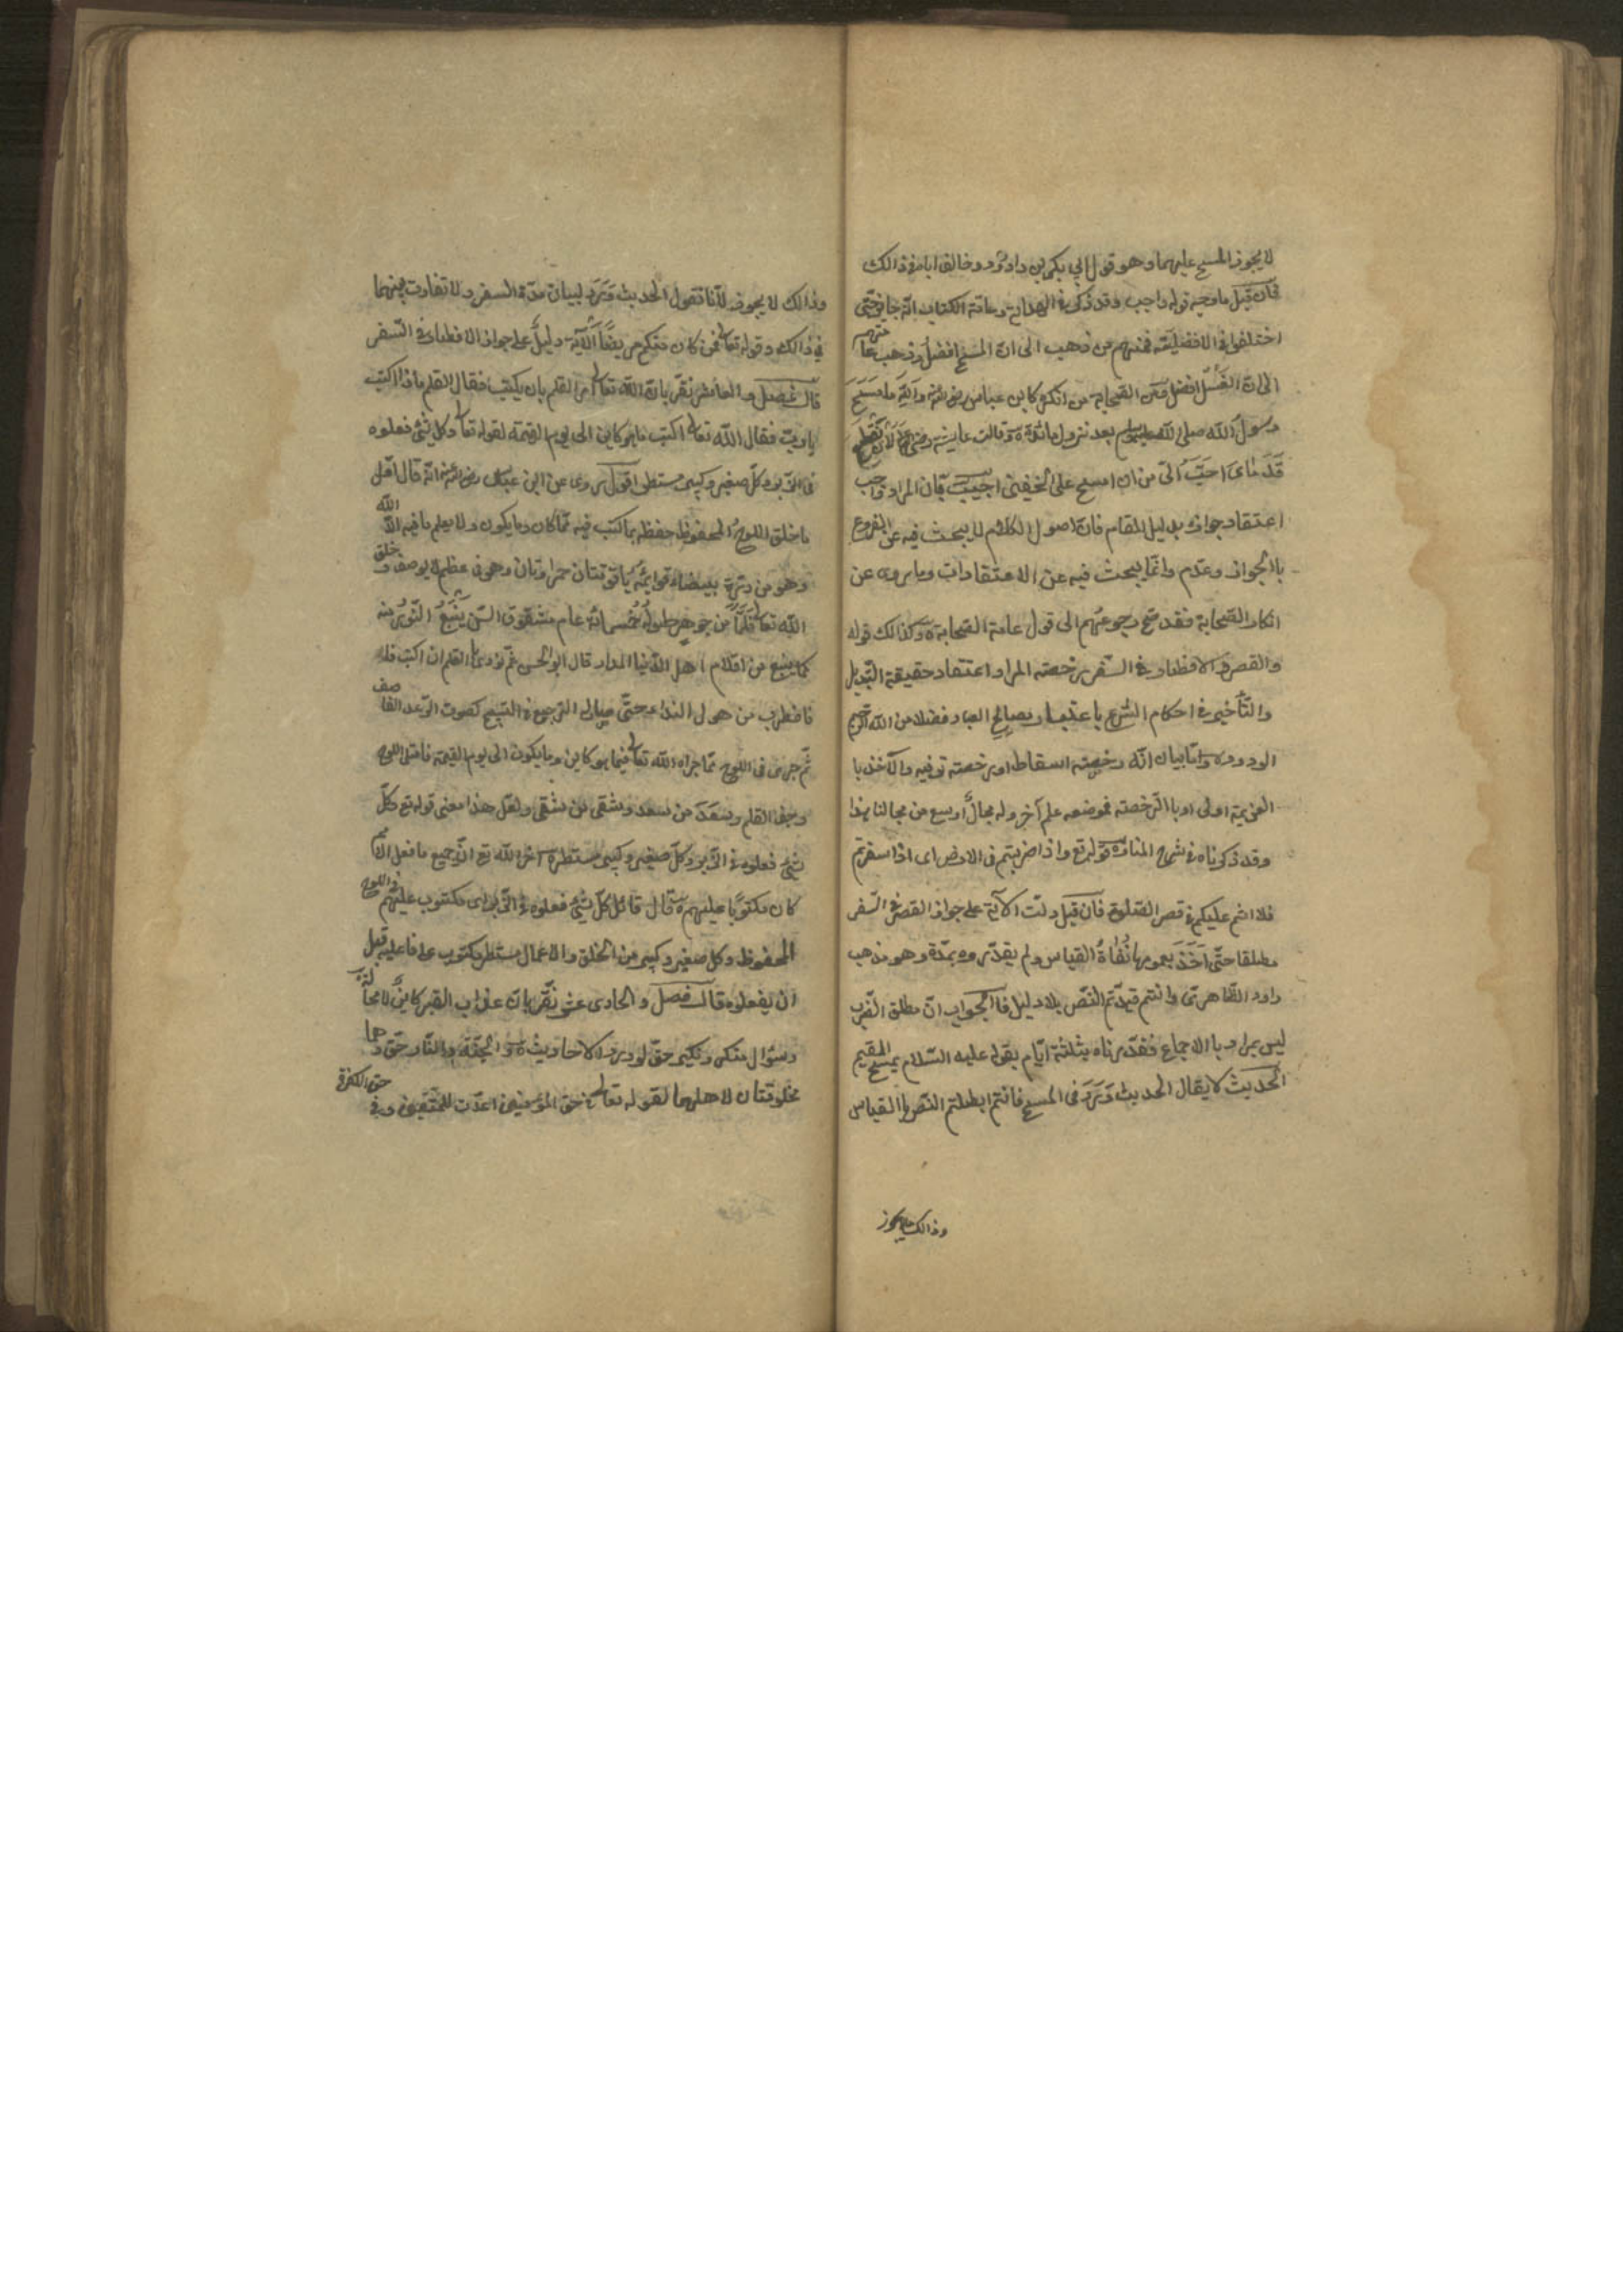 لا يجوز المسح عليهما وهو قول ابي بكر بن داود وخالف اباه في ذالك
فان قيل ما وجه قوله واجب وقد ذكر في الهداية وعامة الكتب انه جايز حتى
اختلفوا في الافضلية فمنهم من ذهب الى ان المسح افضل وذهب عامتهم
الى ان الغسل افضل ومن الصحابة من انكره كابن عباس رضى الله عنه والله ما مسح
رسول الله صلى الله عليه وسلم بعد نزول مائدة وقالت عايشة رضى لان تقطع
قدماى احب الى من ان امسح على الخفين اجيب بان المراد واجب
اعتقاد جوازه بدليل المقام فان اصول الكلام لا يبحث فيه عن الفروع
با الجواز وعدم وانما يبحث فيه عن الاعتقادات وما يروى عن
انكار الصحابة فقد صح رجوعهم الى قول عامة الصحابة وكذالك قوله
والقصر والافطار في السفر رخصة المراد اعتقاد حقيقة التبديل
والتأخير في احكام الشرع باعتبار مصالح العباد فضلا من الله الكريم
الودود واما بيان انه رخصة اسقاط او رخصة ترفيه والاخذ با
العزيمة اولى او با الرخصة فموضعه علم آخر وله مجال أوسع من مجالنا هذا
وقد ذكرناه في شرح المنار قوله تع واذا ضربتم في الارض اى اذا سفرتم
فلا اثم عليكم في قصر الصلوة فان قيل دلت الآية على جواز القصر في السفر
مطلقا حتى اخذ بعمومها نفاة القياس ولم يقدروه بمدة وهو مذهب
داود الظاهرى وانتم قيدتم النص بلا دليل فا الجواب ان مطلق الضرب
ليس بمراد با الاجماع فقدرناه بثلثة ايام بقوله عليه السلام يمسح المقيم
الحديث لا يقال الحديث ورد في المسح فانتم ابطلتم النص با القياس
وذالك لا يجوز
وذالك لا يجوز لأنا نقول الحديث ورد لبيان مدة السفر ولا تفاوت بينهما
في ذالك وقوله تعالى فمن كان منكم مريضا الآية دليل على جواز الافطار في السفر
قال فصل والعاشر نقر بان الله تعالى امر القلم بان يكتب فقال القلم ماذا اكتب
يا رب فقال الله تعالى اكتب ما هو كاين الى يوم القيمة لقوله تعالى وكل شئ فعلوه
في الزبر وكل صغير وكبير مستطر اقول روى عن ابن عباس رضى الله عنه انه قال اول
ما خلق الله اللوح المحفوظ حفظه بما كتب فيه مما كان وما يكون ولا يعلم ما فيه الا الله
وهو من درة بيضاء قوائمه ياقوتتان حمراوتان وهو في عظم لا يوصف وخلق
الله تعالى قلما من جوهر طوله خمسمائة عام مشقوق السن ينبع النور منه
كما ينبع من اقلام اهل الدنيا المداد قال ابو الحسن ثم نودى القلم ان اكتب
فاضطرب من هول الندا حتى صار له الترجيع في التسبيح كصوت الرعد القاصف
ثم جرى في اللوح بما جراه الله تعالى فيما هو كاين وما يكون الى يوم القيمة فامتلى اللوح
وجف القلم وسعد من سعد وشقى من شقى ولعل هذا معنى قوله تع كل
شئ فعلوه في الزبر وكل صغير وكبير مستطر اخبر الله تع ان جميع ما فعل الامم
كان مكتوبا عليهم قال قائل كل شئ فعلوه في الزبر اى مكتوب عليهم في اللوح
المحفوظ وكل صغير وكبير من الخلق والاعمال مستطر مكتوب على فاعليه قبل
ان يفعلوه قال فصل والحادى عشر نقر بان عذاب القبر كاين لا محالة
وسؤال منكر ونكير حق لورود الاحاديث والجنة والنار حق وهما
مخلوقتان لاهلهما لقوله تعالى في حق المؤمنين اعدت للمتقين وفي حق الكفرة